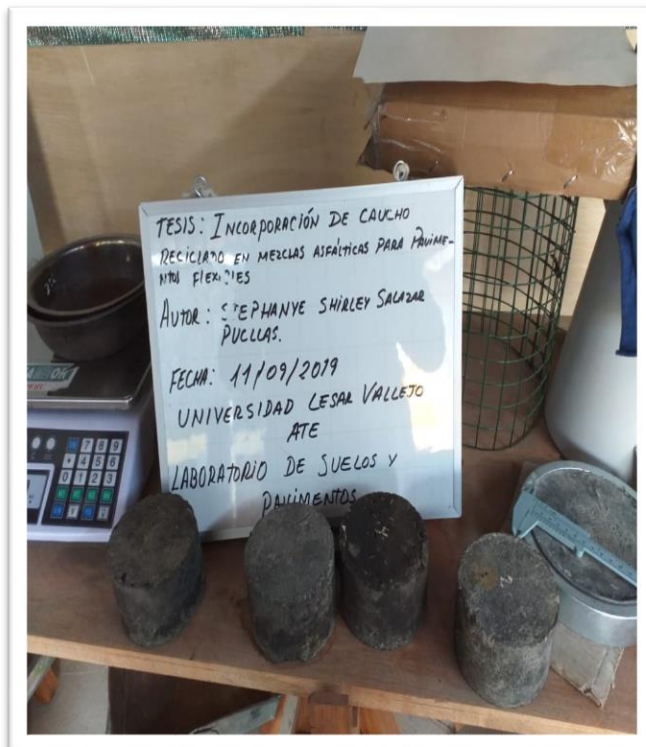 TESIS: INCORPORACIÓN DE CAUCHO
RECICLADO EN MEZCLAS ASFÁLTICAS PARA PAVIME-
NTOS FLEXIBLES
AUTOR: STEPHANYE SHIRLEY SALAZAR
PUCLLAS.
FECHA: 11/09/2019
UNIVERSIDAD CESAR VALLEJO
ATE
LABORATORIO DE SUELOS Y
PAVIMENTOS
7 8 9
4 5 6
0 1 2 3